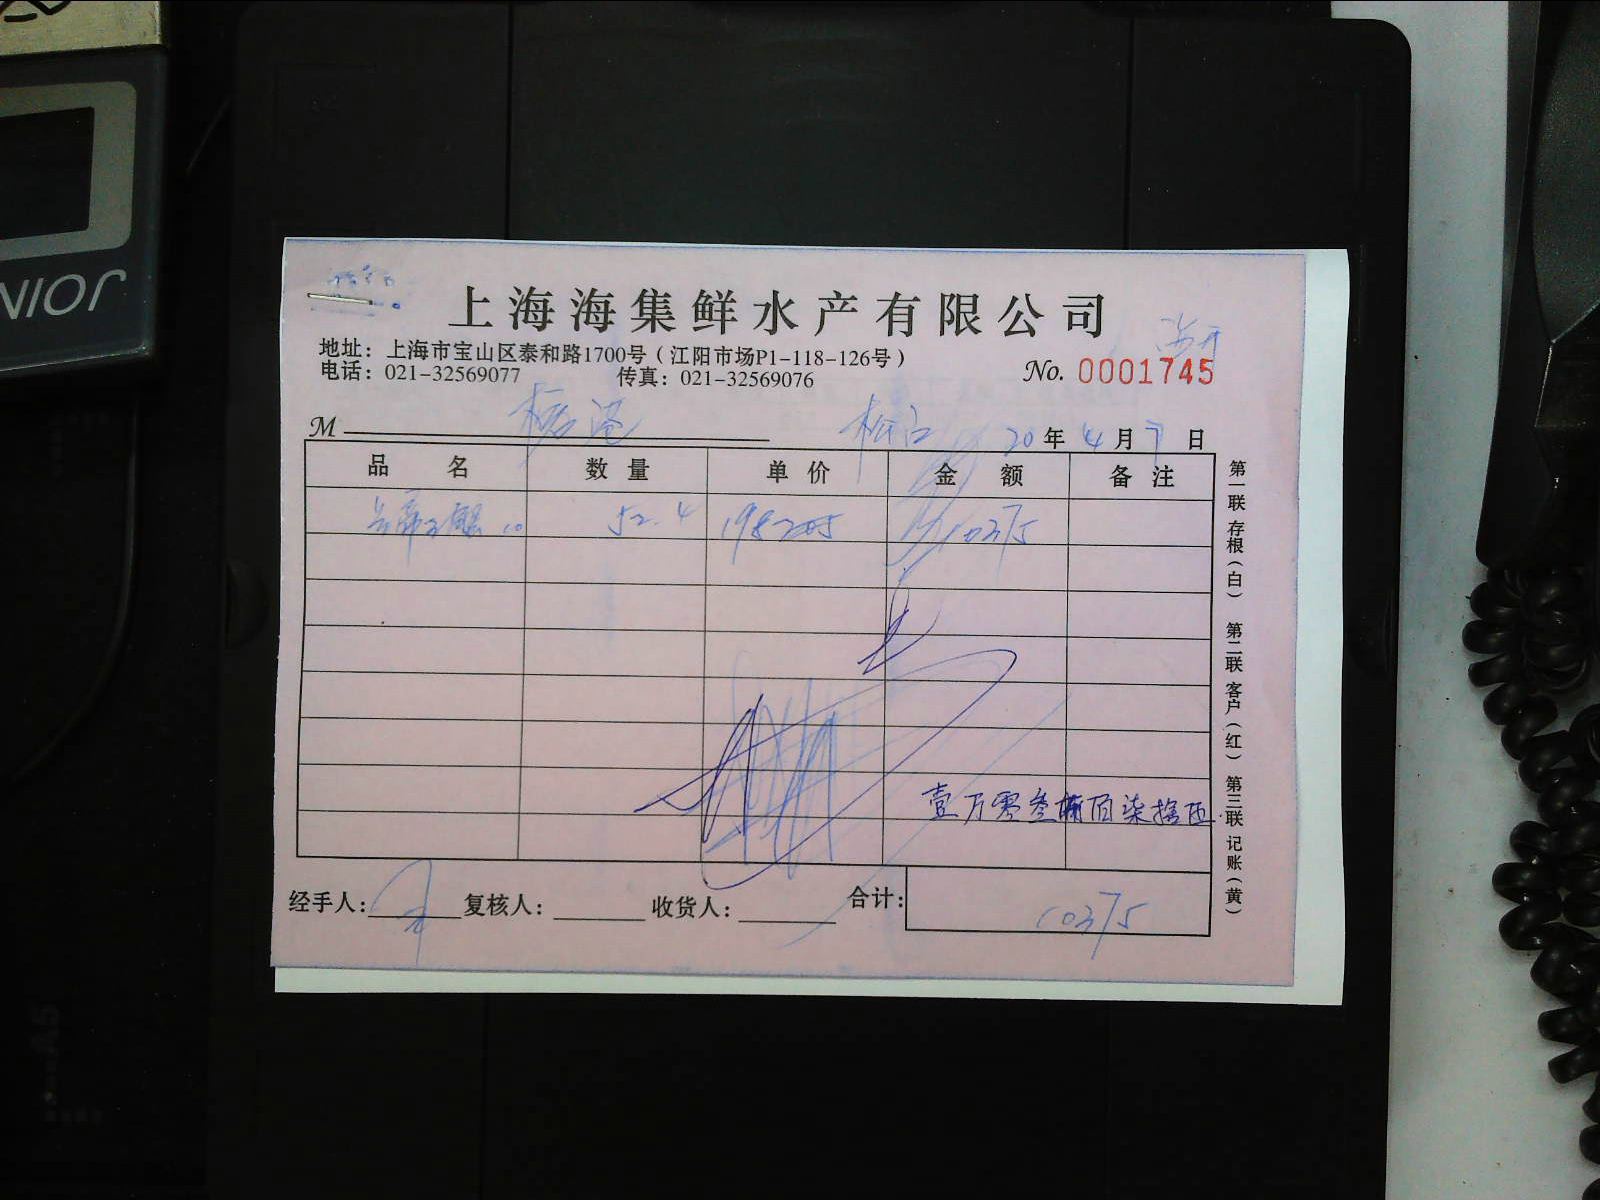 上海海集鲜水产有限公司
地址：上海市宝山区泰和路1700号（江阳市场P1-118-126号）
电话：021-32569077 传真：021-32569076 No. 0001745
M 20年4月7日
品名 数量 单价 金额 备注
52.4 198 10375
壹万零叁佰柒拾伍
经手人： 复核人： 收货人： 合计： 10375
第一联 存根（白） 第二联 客户（红） 第三联 记账（黄）
NIOR